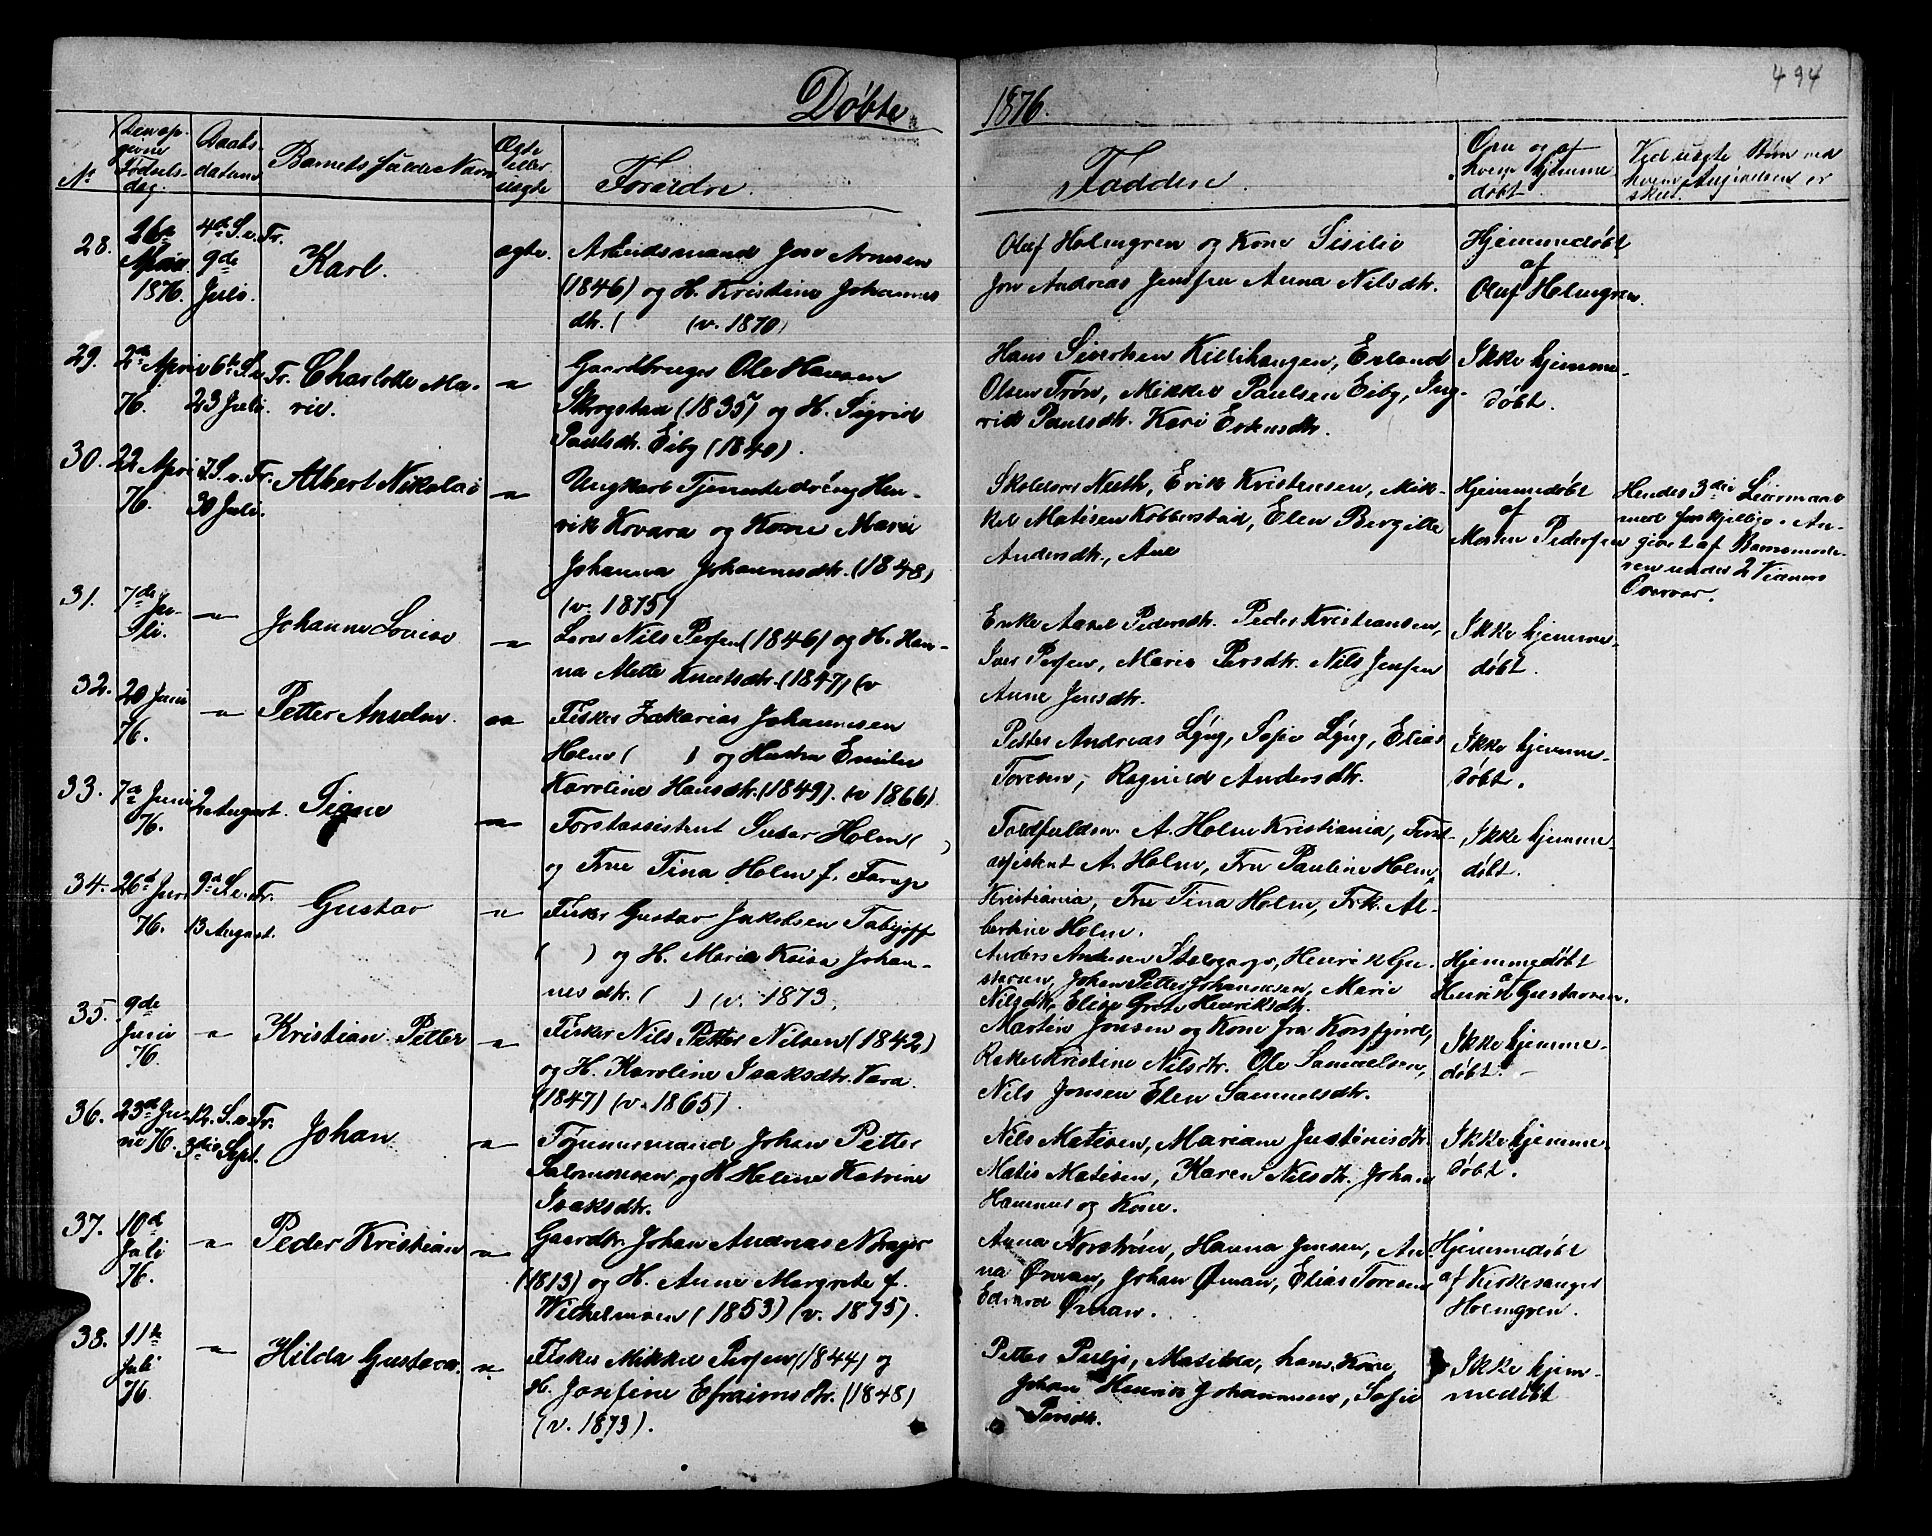 494
Døbte 1876.
No
Den op-
givne
Fødsels-
dag.
Daabs-
datum
Barnets fulde Navn
Ægte
eller
uægte
Forældre.
Faddere.
Om og af
hvem hjemme
døbt.
Ved uægte Børn ved
hvem Angivelsen er
skeet.
28. 26de 4de S. e. Fr.
1876. 9de Juli.
Karl.
ægte.
Arbeidsmand Jens Arnesen
(1846) og H. Kristine Johannes
dtr. ( (v. 1870)
Olaf Holmgren og Kone Sisilie
Jon Andreas Jensen Anna Nilsdtr.
Hjemmedøbt
af
Olaf Holmgren.
29. 2den April 6te S. e. Fr.
76. 23 Juli.
Charlotte Ma-
rie.
"
Gaardbruger Ole Hansen
Skogstan (1835) og H. Sigrid
Paulsdtr. Eiby (1840).
Hans Sivertsen Killihaugen, Erland
Olsen Trøn, Mikkel Paulsen Eiby, Ing-
rid Paulsdtr. Kari Erlensdtr.
Ikke hjemme-
døbt.
30. 22 April 7. S. e. Fr.
76. 30 Juli.
Albert Nikolai
"
Ungkarl Tjenestedreng Hen-
rik Kovara og Kone Marie
Johanna Johannesdtr. (1848)
(v. 1875)
Skolelærer Neeth, Erik Kristensen, Mik-
kel Matisen Kobberstad, Elen Bergitte
Andersdtr., Ane
Hjemmedøbt
af
Morten Pedersen
Hendes 3die Leiermaal
med forskjellige. An-
givet af Barnemode-
ren under 2 Vidners
Overvær.
31. 7de Ju-
li.
"
Johanne Lovise
"
Lars Nils Persen (1846) og H. Han-
na Mette Knutsdtr. (1847) (v
Enke Aanel Pedersdtr. Peder Kristiansen,
Iver Persen, Marie Persdtr. Nils Jensen
Anne Jensdtr.
Ikke hjemme-
døbt.
32. 20 Juni
76.
"
Petter Anselm.
"
Fisker Zakarias Johannesen
Holm ( ) og Hustru Emilie
Karoline Hansdtr. (1849). (v 1866)
Petter Andreas Lyng, Sofie Lyng, Elias
Toresen, Ragnild Andersdtr.
Ikke hjemme-
døbt.
33. 7de Juni 2 August.
76.
Signe
"
Forstassistent Holm ( )
og Frue Tina Holm f. Farup
A. Holm Kristiania, Forst-
assistent A. Holm, Fru Pauline Holm,
Kristiania, Fru Tina Holm, Frk. Al-
bertine Holm.
Ikke hjemme-
døbt.
34. 26de Juni 9de S. e. Fr.
76. 13 August.
Gustav
"
Fisker Gustav Jakobsen
( ) og H. Maria Kaisa Johan-
nesdtr. ( ) (v. 1873.
Anders Andersen Henrik Gu-
stavsen, Johan Petter Johannesen, Marie
Nilsdtr, Elise Grete Henriksdtr.
Hjemmedøbt
af
Henrik Gustavsen.
35. 9de
Juni
76.
"
Kristian Petter
"
Fisker Nils Petter Nilsen (1842)
og H. Karoline Isaksdtr. Vara.
(1847) (v. 1865).
Martin Jonsen og Kone fra Korsfjord,
Rakel Kristine Nilsdtr. Ole Samuelsen,
Nils Jonsen Elen Samuelsdtr.
Ikke hjemme-
døbt.
36. 23de Ju- 12. S. e. Fr.
ni 76. 3die Sept.
Johan
"
Tømmermand Johan Petter
Salomonsen, og H. Helene Katrine
Isaksdtr.
Nils Matisen, Mariane Justinisdtr.
Matis Matisen, Karen Nilsdtr. Johan
Hammer og Kone.
Ikke hjemme-
døbt.
37. 10de
Juli
76.
"
Peder Kristian
"
Gaardbr. Johan Andreas
(1813) og H. Anne Margrete f.
Wickelmoen (1853) (v. 1875).
Anna Norstrøm, Hanna Jensen, An-
na Øman, Johan Øman, Elias Toresen
Edvard Øman.
Hjemmedøbt
af Kirkesanger
Holmgren.
38. 11te
Juli
76.
"
Hilda Gustava.
"
Fisker Mikkel Persen (1844) og
H. Josefine Efraimsdtr. (1848)
(v. 1873).
Petter Matilde, hans Kone,
Johan Henrik Johannesen, Sofie
Persdtr.
Ikke hjem-
medøbt